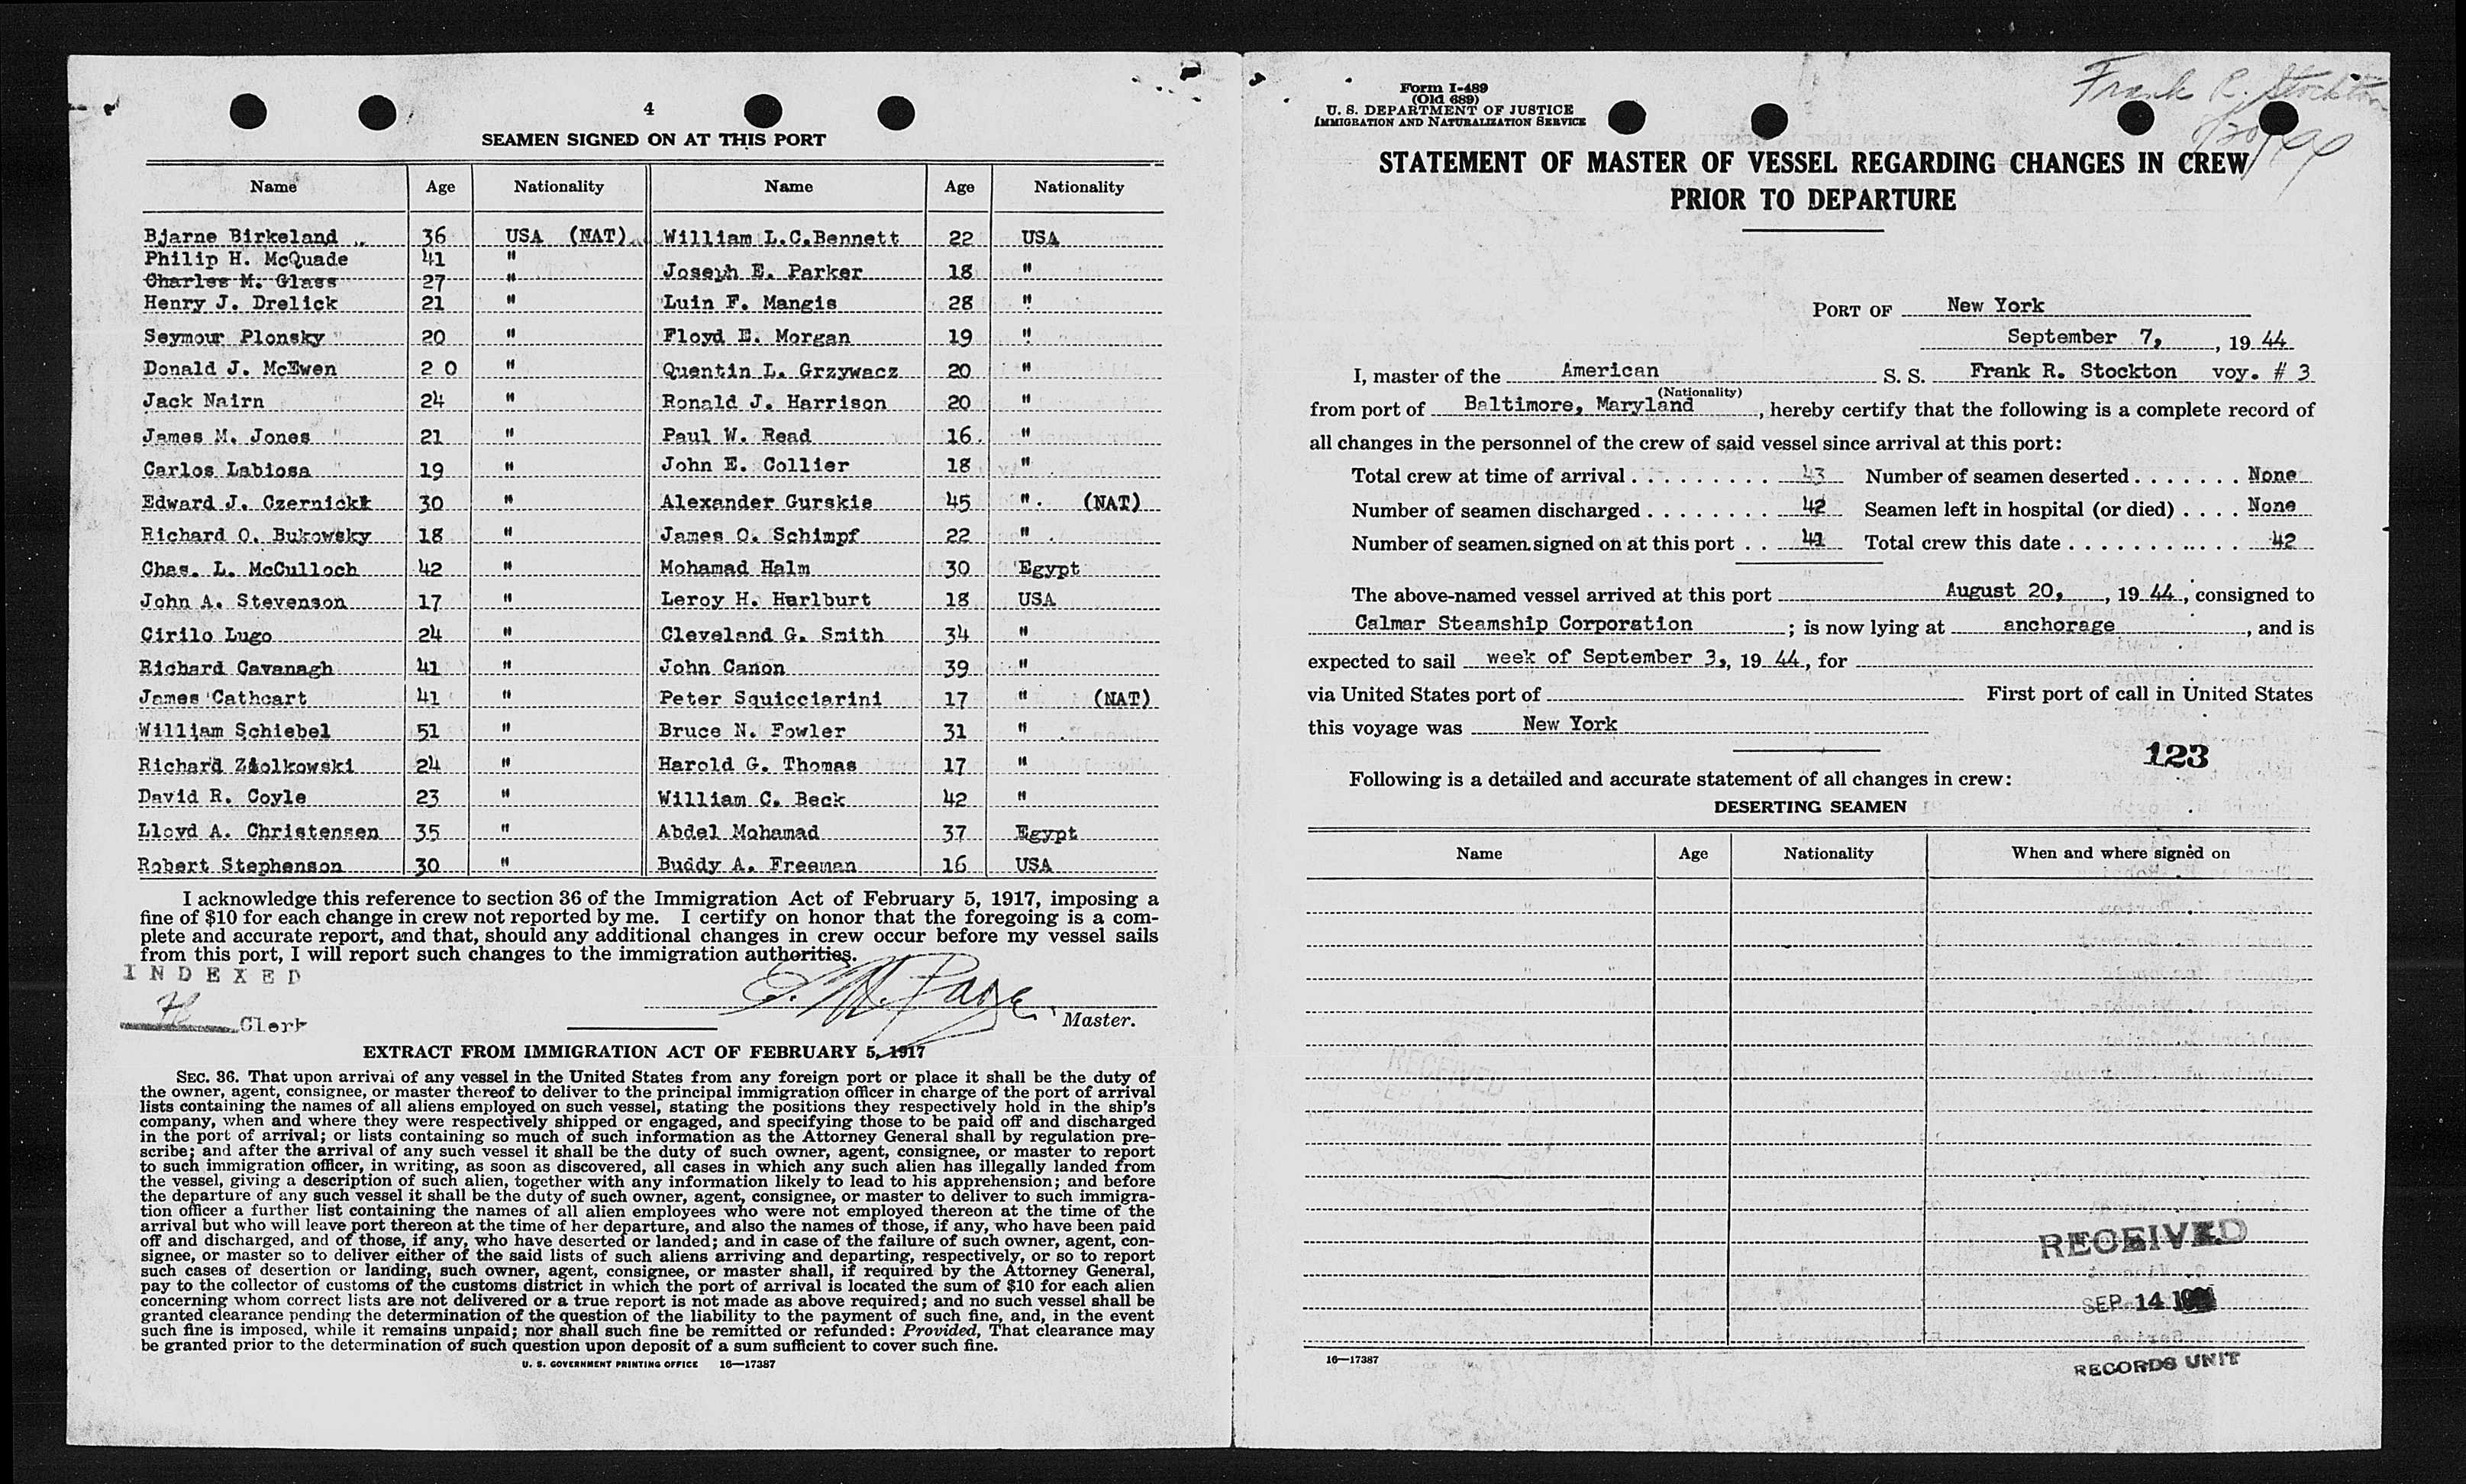 4
SEAMEN SIGNED ON AT THIS PORT
Name Age Nationality Name Age Nationality
Bjarne Birkeland 36 USA (NAT) William L.C.Bennett 22 USA
Philip H. McQuade 41 "
Joseph E. Parker 18 "
Charles M. Glass 27 "
Henry J. Drelick 21 " Luin F. Mangis 28 "
Seymour Plonsky 20 " Floyd E. Morgan 19 "
Donald J. McEwen 2 0 " Quentin L. Grzywacz 20 "
Jack Nairn 24 " Ronald J. Harrison 20 "
James M. Jones 21 " Paul W. Read 16 "
Carlos Labiosa 19 " John E. Collier 18 "
Edward J. Czernicki 30 " Alexander Gurskie 45 " (NAT)
Richard O. Bukowsky 18 " James O. Schimpf 22 "
Chas. L. McCulloch 42 " Mohamad Halm 30 Egypt
John A. Stevenson 17 " Leroy H. Hurlburt 18 USA
Cirilo Lugo 24 " Cleveland G. Smith 34 "
Richard Cavanagh 41 " John Canon 39 "
James Cathcart 41 " Peter Squicciarini 17 " (NAT)
William Schiebel 51 " Bruce N. Fowler 31 "
Richard Ziolkowski 24 " Harold G. Thomas 17 "
David R. Coyle 23 " William C. Beck 42 "
Lloyd A. Christensen 35 " Abdel Mohamad 37 Egypt
Robert Stephenson 30 " Buddy A. Freeman 16 USA
I acknowledge this reference to section 36 of the Immigration Act of February 5, 1917, imposing a
fine of $10 for each change in crew not reported by me. I certify on honor that the foregoing is a com-
plete and accurate report, and that, should any additional changes in crew occur before my vessel sails
from this port, I will report such changes to the immigration authorities.
INDEXED
Clerk
Master.
EXTRACT FROM IMMIGRATION ACT OF FEBRUARY 5, 1917
SEC. 36. That upon arrival of any vessel in the United States from any foreign port or place it shall be the duty of
the owner, agent, consignee, or master thereof to deliver to the principal immigration officer in charge of the port of arrival
lists containing the names of all aliens employed on such vessel, stating the positions they respectively hold in the ship's
company, when and where they were respectively shipped or engaged, and specifying those to be paid off and discharged
in the port of arrival; or lists containing so much of such information as the Attorney General shall by regulation pre-
scribe; and after the arrival of any such vessel it shall be the duty of such owner, agent, consignee, or master to report
to such immigration officer, in writing, as soon as discovered, all cases in which any such alien has illegally landed from
the vessel, giving a description of such alien, together with any information likely to lead to his apprehension; and before
the departure of any such vessel it shall be the duty of such owner, agent, consignee, or master to deliver to such immigra-
tion officer a further list containing the names of all alien employees who were not employed thereon at the time of the
arrival but who will leave port thereon at the time of her departure, and also the names of those, if any, who have been paid
off and discharged, and of those, if any, who have deserted or landed; and in case of the failure of such owner, agent, con-
signee, or master so to deliver either of the said lists of such aliens arriving and departing, respectively, or so to report
such cases of desertion or landing, such owner, agent, consignee, or master shall, if required by the Attorney General,
pay to the collector of customs of the customs district in which the port of arrival is located the sum of $10 for each alien
concerning whom correct lists are not delivered or a true report is not made as above required; and no such vessel shall be
granted clearance pending the determination of the question of the liability to the payment of such fine, and, in the event
such fine is imposed, while it remains unpaid; nor shall such fine be remitted or refunded: Provided, That clearance may
be granted prior to the determination of such question upon deposit of a sum sufficient to cover such fine.
U. S. GOVERNMENT PRINTING OFFICE 16—17387
Frank R. Stockton
Form I-489
(Old 689)
U. S. DEPARTMENT OF JUSTICE
IMMIGRATION AND NATURALIZATION SERVICE
STATEMENT OF MASTER OF VESSEL REGARDING CHANGES IN CREW
PRIOR TO DEPARTURE
PORT OF New York
September 7, , 19 44
I, master of the American S. S. Frank R. Stockton voy. # 3
(Nationality)
from port of Baltimore, Maryland , hereby certify that the following is a complete record of
all changes in the personnel of the crew of said vessel since arrival at this port:
Total crew at time of arrival 43 Number of seamen deserted None
Number of seamen discharged 42 Seamen left in hospital (or died) None
Number of seamen signed on at this port 41 Total crew this date 42
The above-named vessel arrived at this port August 20, , 19 44 , consigned to
Calmar Steamship Corporation ; is now lying at anchorage , and is
expected to sail week of September 3, 19 44 , for
via United States port of First port of call in United States
this voyage was New York
123
Following is a detailed and accurate statement of all changes in crew:
DESERTING SEAMEN
Name Age Nationality When and where signed on
RECEIVED
SEP 14
16—17387
RECORDS UNIT